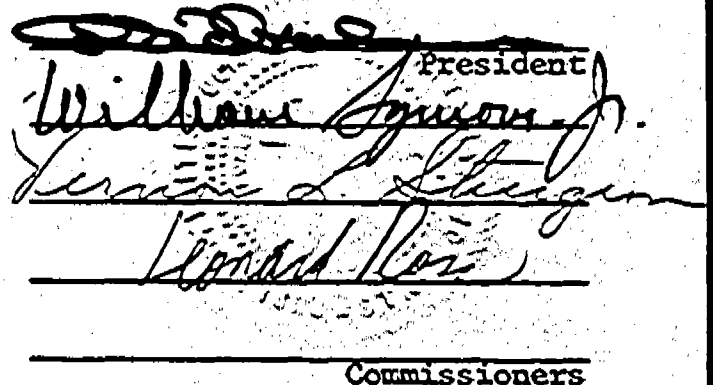 President
William Symons, Jr.
Vernon L. Sturgeon
Leonard Ross
Commissioners